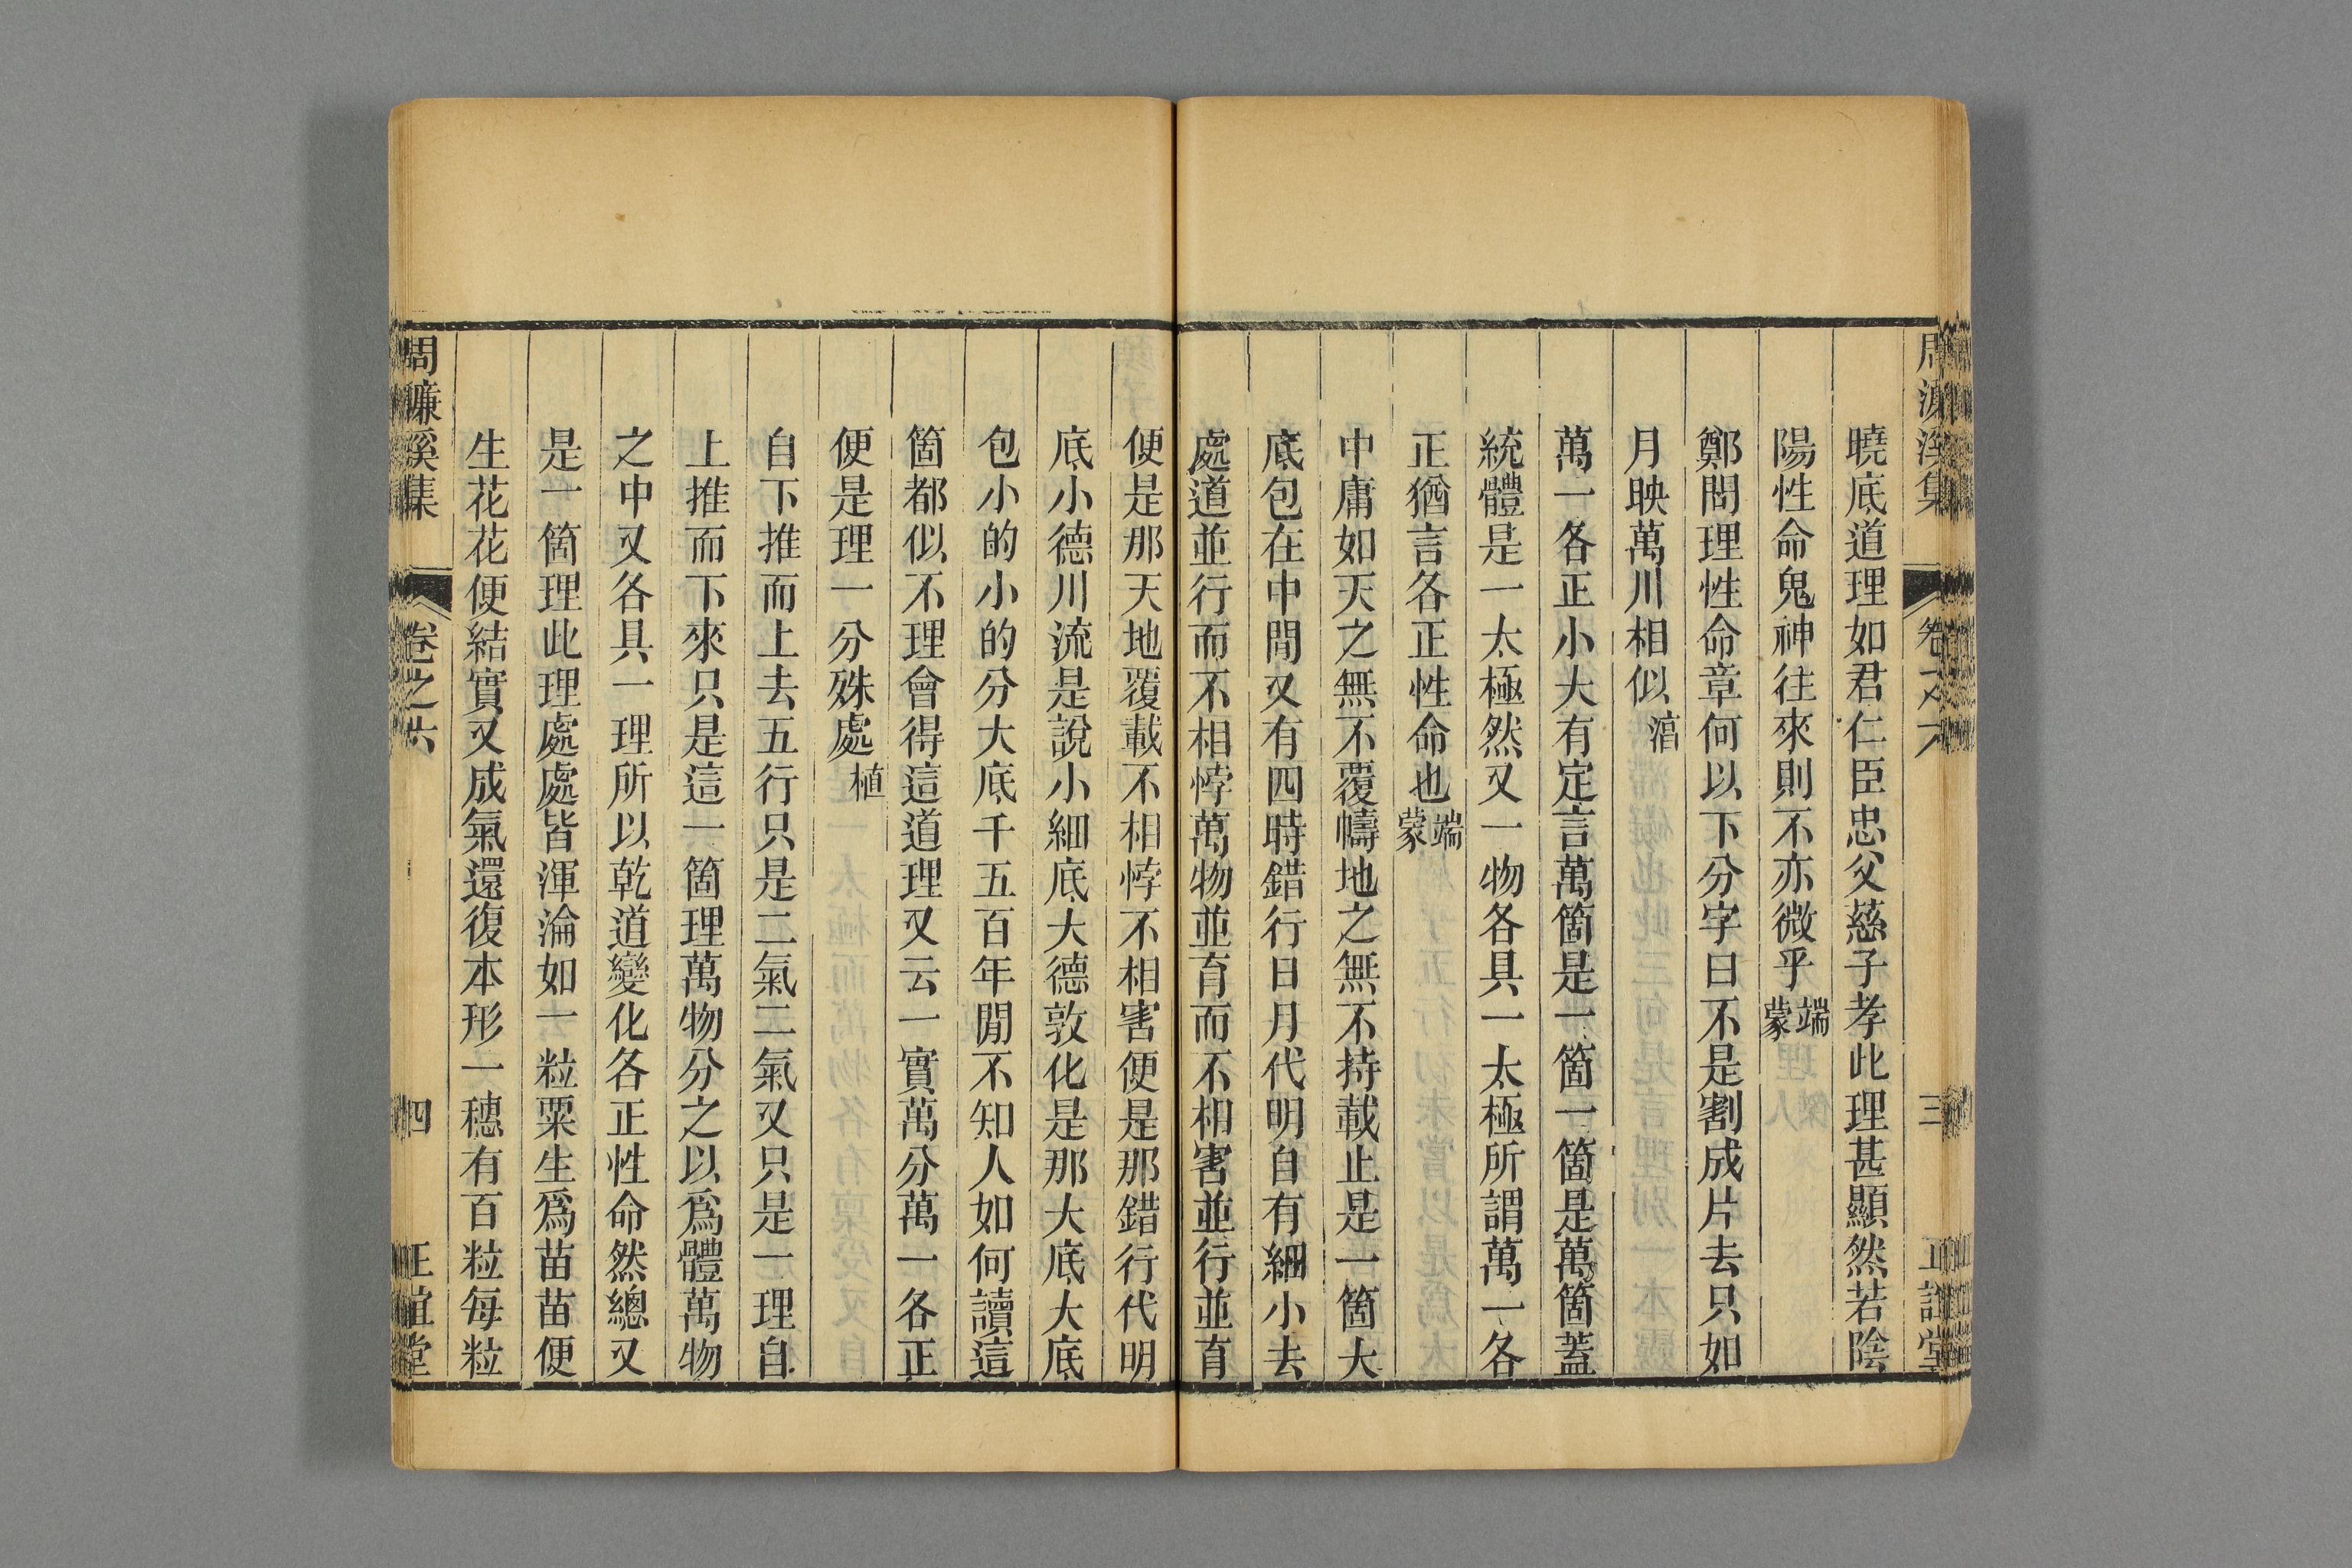 周濂溪集 卷之六 三 正誼堂
曉底道理如君仁臣忠父慈子孝此理甚顯然若陰
陽性命鬼神往來則不亦微乎端蒙
鄭問理性命章何以下分字曰不是割成片去只如
月映萬川相似淳
萬一各正小大有定言萬箇是一箇一箇是萬箇蓋
統體是一太極然又一物各具一太極所謂萬一各
正猶言各正性命也端蒙
中庸如天之無不覆幬地之無不持載止是一箇大
底包在中間又有四時錯行日月代明自有細小去
處道並行而不相悖萬物並育而不相害並行並育
便是那天地覆載不相悖不相害便是那錯行代明
底小德川流是說小細底大德敦化是那大底大底
包小的小的分大底千五百年間不知人如何讀這
箇都似不理會得這道理又云一實萬分萬一各正
便是理一分殊處植
自下推而上去五行只是二氣二氣又只是一理自
上推而下來只是這一箇理萬物分之以爲體萬物
之中又各具一理所以乾道變化各正性命然總又
是一箇理此理處處皆渾淪如一粒粟生爲苗苗便
生花花便結實又成氣還復本形一穗有百粒每粒
周濂溪集 卷之六 四 正誼堂